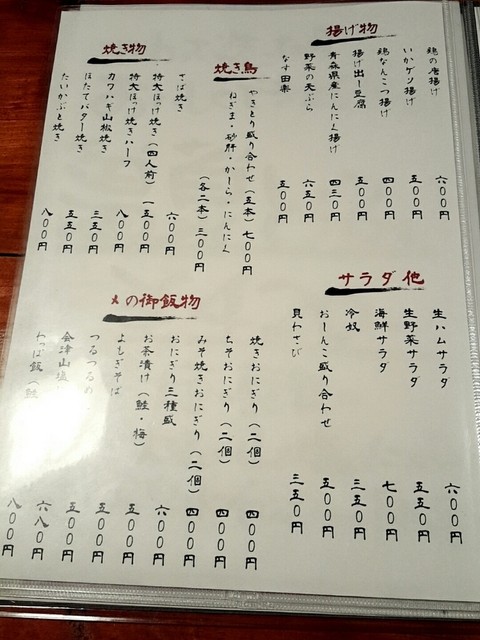 揚げ物
鶏の唐揚げ 六〇〇円
いかゲソ揚げ 五〇〇円
鶏なんこつ揚げ 四〇〇円
揚げ出し豆腐 五〇〇円
青森県産にんにく揚げ 四三〇円
野菜の天ぷら 六五〇円
なす田楽 五〇〇円
焼き鳥
やきとり盛り合わせ（五本）七〇〇円
ねぎま・砂肝・かしら・にんにく
（各二本）三〇〇円
焼き物
さば焼き 六〇〇円
特大ほっけ焼き（四人前）一五〇〇円
特大ほっけ焼きハーフ 八〇〇円
カワハギ山椒焼き 三五〇円
ほたてバター焼き 五五〇円
たいかぶと焼き 八〇〇円
サラダ 他
生ハムサラダ 六〇〇円
生野菜サラダ 五五〇円
海鮮サラダ 七〇〇円
冷奴 三五〇円
おしんこ盛り合わせ 五〇〇円
貝わさび 三五〇円
〆の御飯物
焼きおにぎり（二個）四〇〇円
ちそおにぎり（二個）四〇〇円
みそ焼きおにぎり（二個）四〇〇円
おにぎり三種盛 六〇〇円
お茶漬け（鮭・梅）五〇〇円
よもぎそば 五〇〇円
つるつるめ 五〇〇円
会津山塩 五〇〇円
わっぱ飯（鮭 六八〇円
八〇〇円